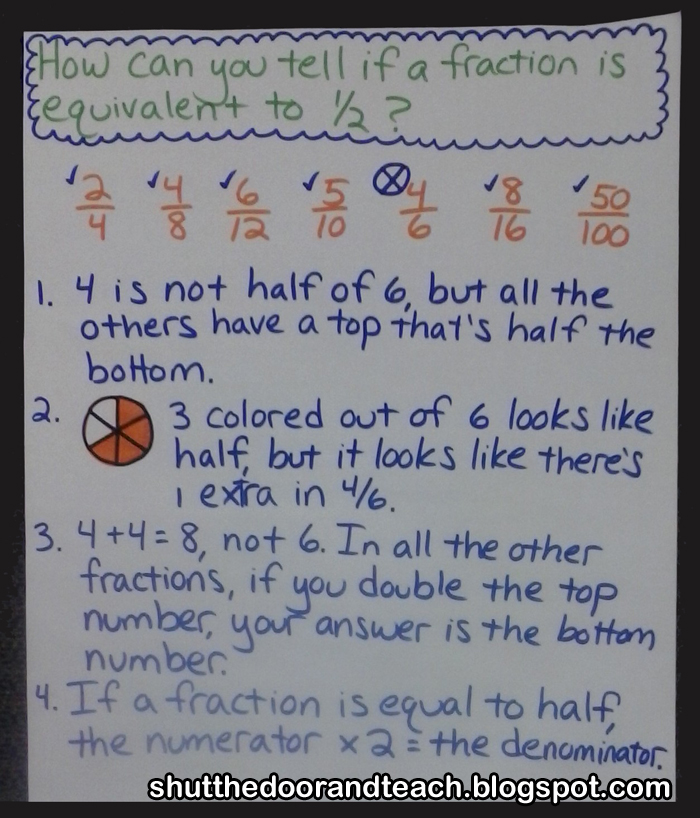 How can you tell if a fraction is
equivalent to 1/2?
✓2/4 ✓4/8 ✓6/12 ✓5/10 ⓧ4/6 ✓8/16 ✓50/100
1. 4 is not half of 6, but all the
others have a top that's half the
bottom.
2. 3 colored out of 6 looks like
half, but it looks like there's
1 extra in 4/6.
3. 4+4=8, not 6. In all the other
fractions, if you double the top
number, your answer is the bottom
number.
4. If a fraction is equal to half,
the numerator x2 = the denominator.
shutthedoorandteach.blogspot.com